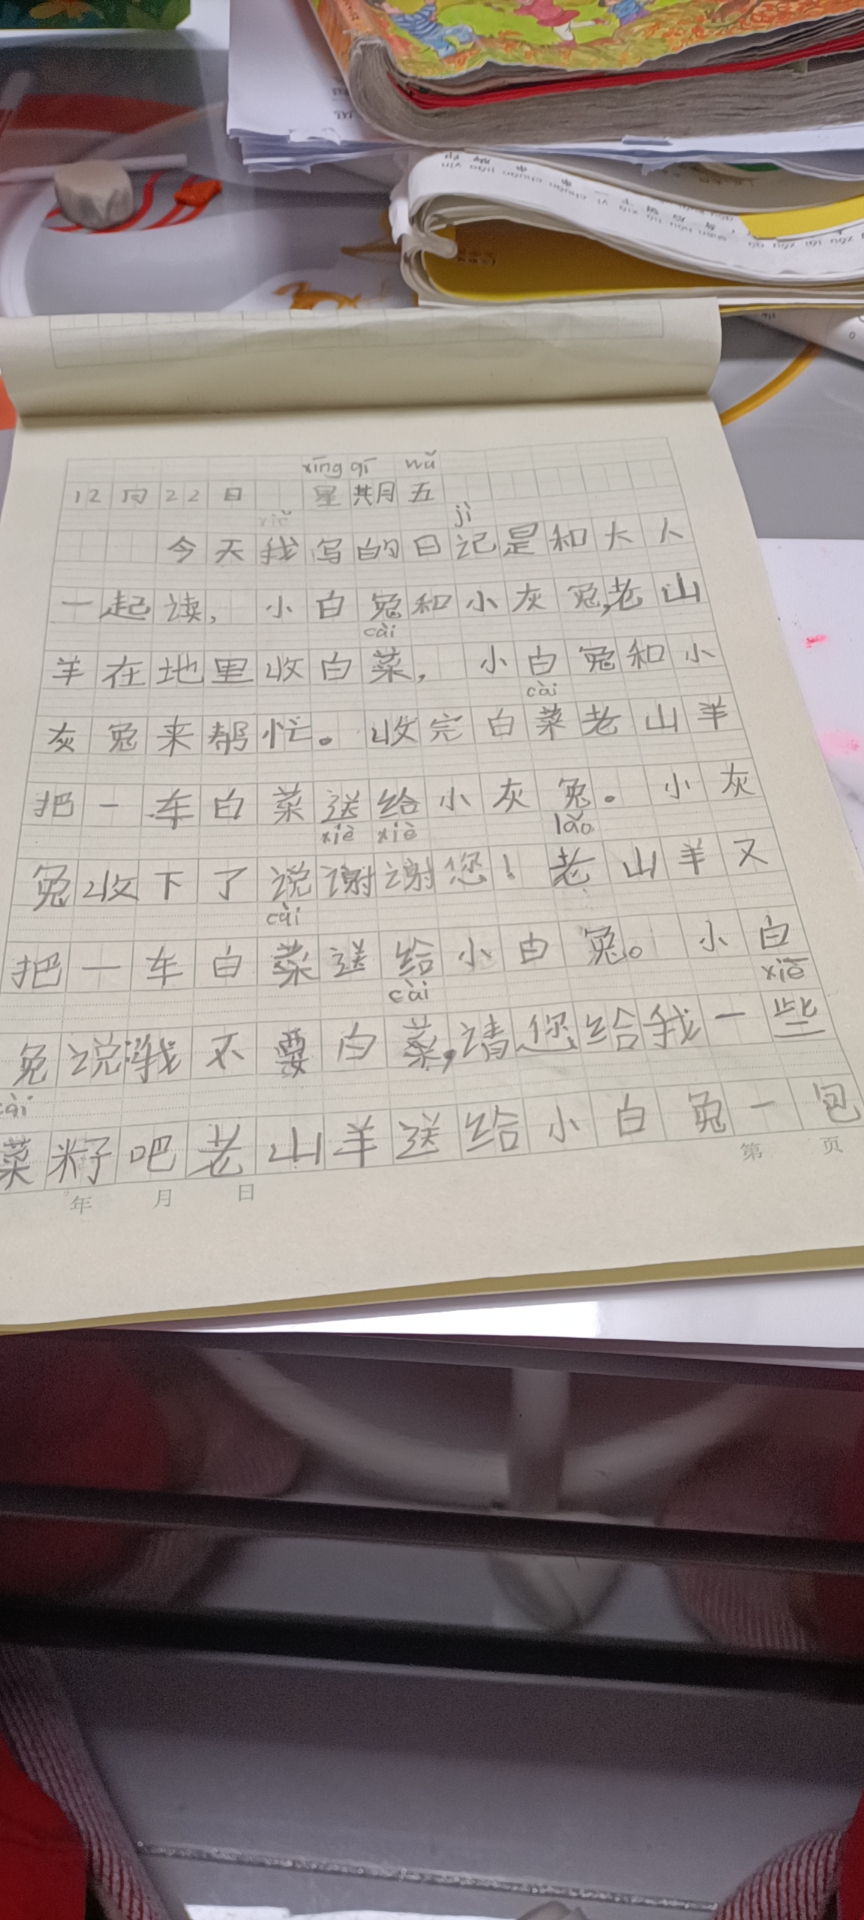 xīng qī wǔ
12 月 22 日 星期五
xiě jì
今天我写的日记是和大人
一起读，小白兔和小灰兔,老山
cài
羊在地里收白菜，小白兔和小
cài
灰兔来帮忙。收完白菜老山羊
把一车白菜送给小灰兔。小灰
xiè xiè lǎo
兔收下了说谢谢您！老山羊又
cài
把一车白菜送给小白兔。小白
cài xiē
兔说:我不要白菜,请您给我一些
cài
菜籽吧老山羊送给小白兔一包
年 月 日 第 页